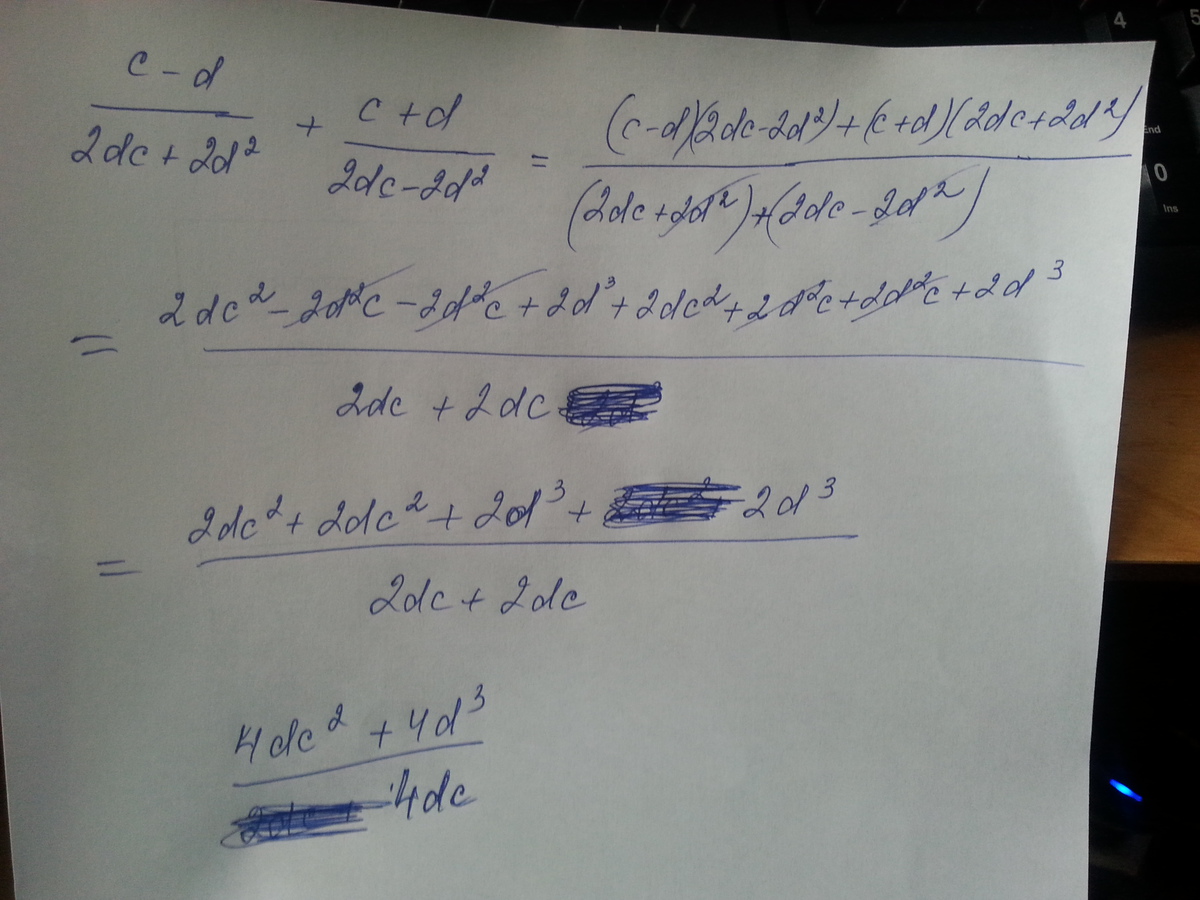 c - d / 2dc + 2d² + c + d / 2dc - 2d² = (c-d)(2dc-2d²)+(c+d)(2dc+2d²) / (2dc+2d²)+(2dc-2d²)
= 2dc² - 2d²c - 2d²c + 2d³ + 2dc² + 2d²c + 2d²c + 2d³ / 2dc + 2dc
= 2dc² + 2dc² + 2d³ + 2d³ / 2dc + 2dc
4dc² + 4d³ / 4dc
4
5
End
0
Ins